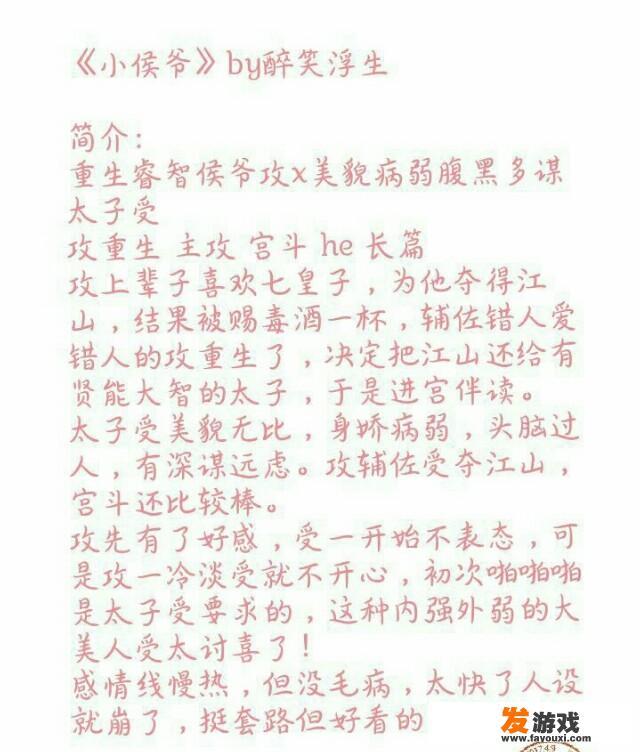 《小侯爷》by醉笑浮生
简介:
重生睿智侯爷攻x美貌病弱腹黑多谋
太子受
攻重生 主攻 宫斗 he 长篇
攻上辈子喜欢七皇子，为他夺得江
山，结果被赐毒酒一杯，辅佐错人爱
错人的攻重生了，决定把江山还给有
贤能大智的太子，于是进宫伴读。
太子受美貌无比，身娇病弱，头脑过
人，有深谋远虑。攻辅佐受夺江山，
宫斗还比较棒。
攻先有了好感，受一开始不表态，可
是攻一冷淡受就不开心，初次啪啪啪
是太子受要求的，这种内强外弱的大
美人受太讨喜了！
感情线慢热，但没毛病，太快了人设
就崩了，挺套路但好看的
发游戏
www.fayouxi.com